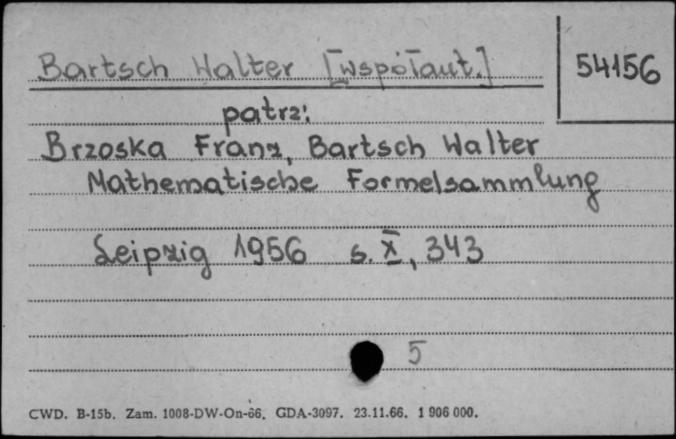 Bartsch Walter [współaut.]
54156
patrz:
Brzoska Franz, Bartsch Walter
Mathematische Formelsammlung
Leipzig 1956 s. X, 343
5
CWD. B-15b. Zam. 1008-DW-On-66. GDA-3097. 23.11.66. 1 906 000.